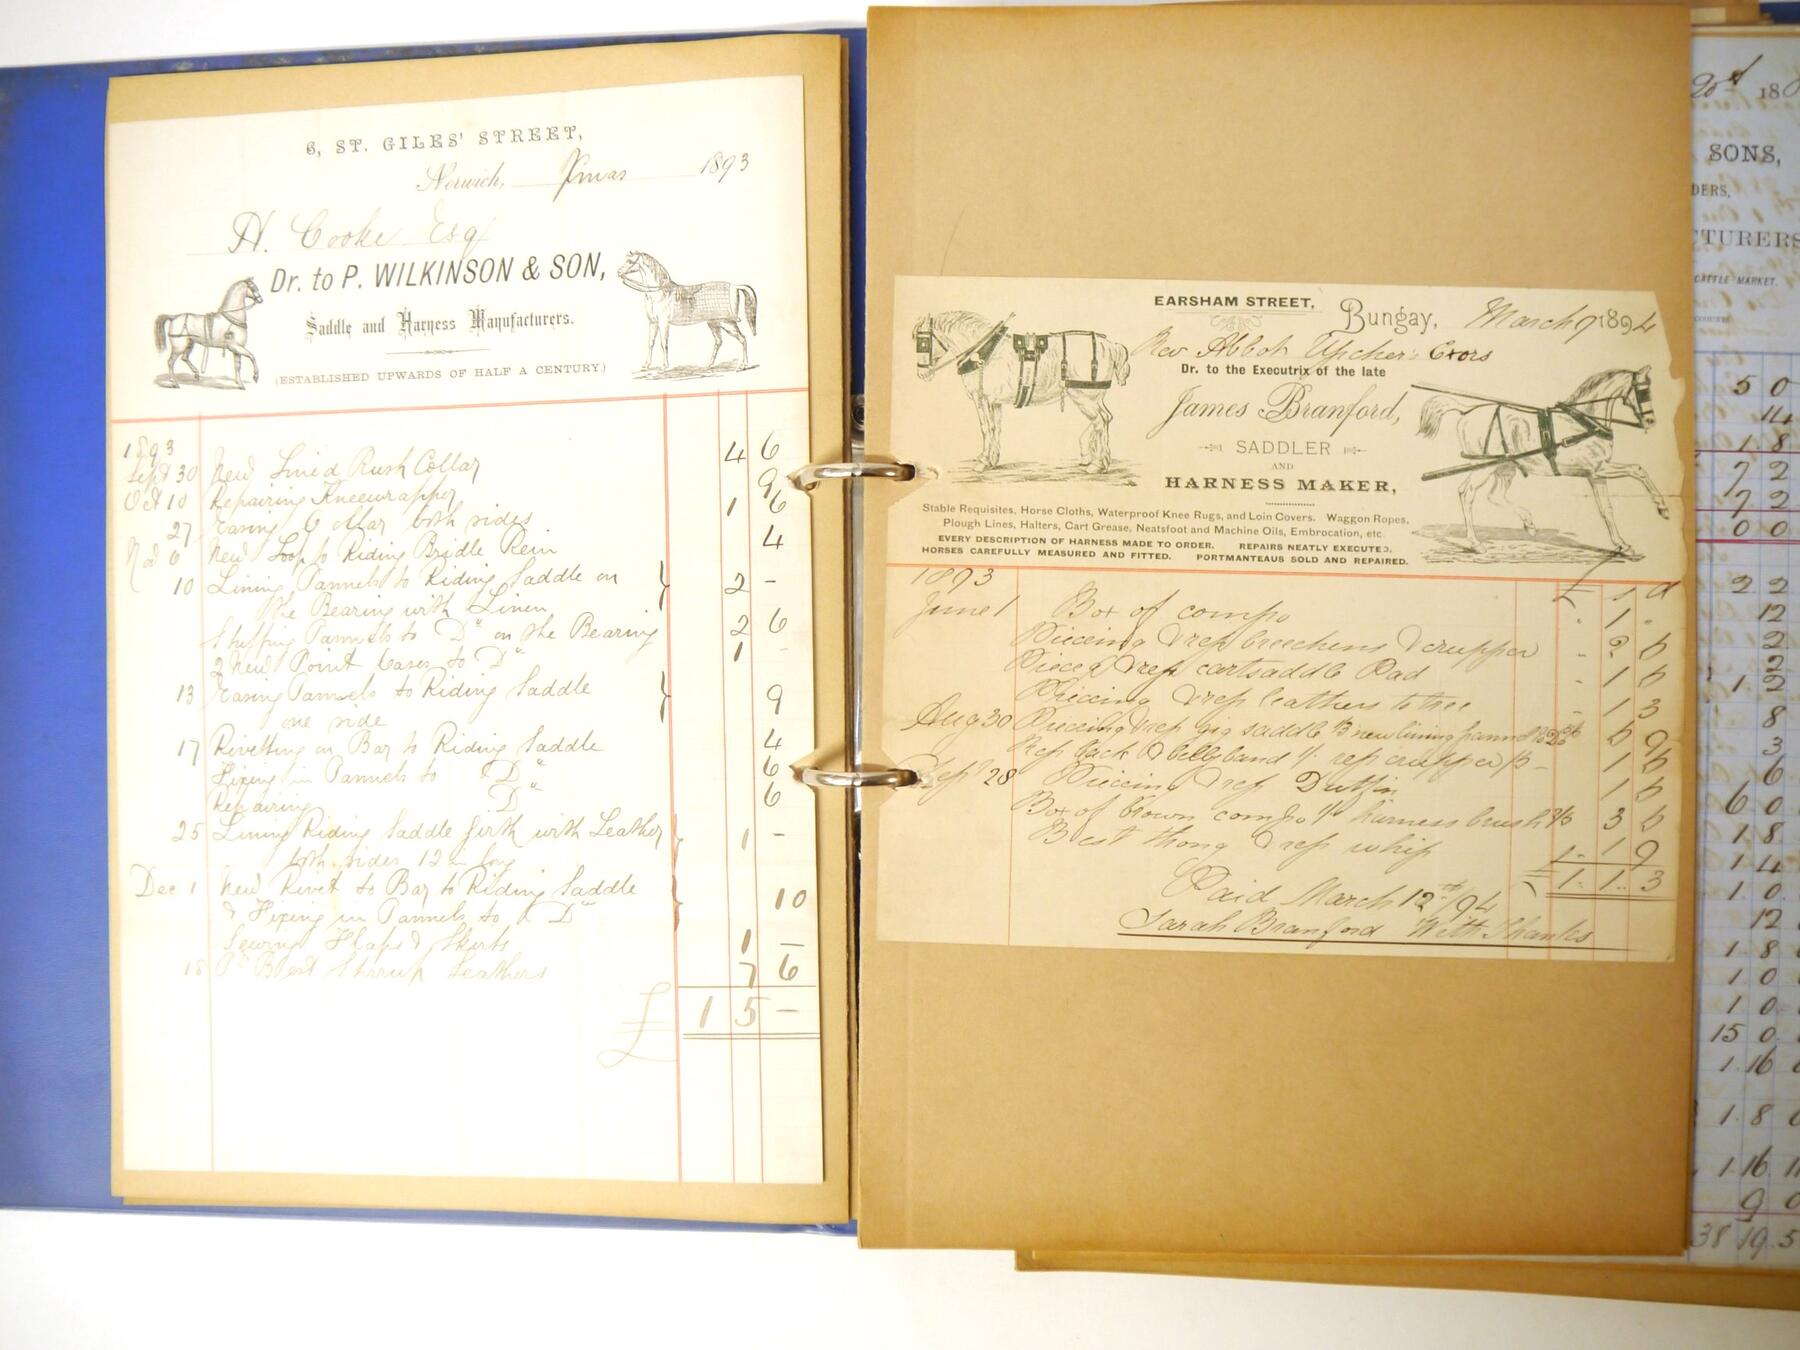 6, ST. GILES' STREET,
Norwich, Xmas 1893
H. Cooke Esq
Dr. to P. WILKINSON & SON,
Saddle and Harness Manufacturers.
(ESTABLISHED UPWARDS OF HALF A CENTURY.)
1893
Sept 30 New Lined Rush Collar 4 6
Oct 10 Repairing Kneewrapper 9
27 Easing Collar both sides 1 6
Nov 6 New Loop to Riding Bridle Rein 4
10 Lining Pannels to Riding Saddle on
the Bearing with Linen 2 -
Stuffing Pannels to D" on the Bearing 2 6
2 New Point Cases to D" 1 -
13 Easing Pannels to Riding Saddle
one side 9
17 Rivetting on Bar to Riding Saddle 4
Fixing in Pannels to D" 6
Repairing D" 6
25 Lining Riding Saddle Girth with Leather
both sides 12 in long 1 -
Dec 1 New Rivet to Bar to Riding Saddle
& Fixing in Pannels to D" 10
Sewing Flaps & Skirts 1 -
18 Pr Best Stirrup Leathers 7 6
£ 1 5 -
EARSHAM STREET,
Bungay, March 9 1894
Rev Abbot Upcher's Exors
Dr. to the Executrix of the late
James Branford,
SADDLER
AND
HARNESS MAKER,
Stable Requisites, Horse Cloths, Waterproof Knee Rugs, and Loin Covers. Waggon Ropes,
Plough Lines, Halters, Cart Grease, Neatsfoot and Machine Oils, Embrocation, etc.
EVERY DESCRIPTION OF HARNESS MADE TO ORDER. REPAIRS NEATLY EXECUTED.
HORSES CAREFULLY MEASURED AND FITTED. PORTMANTEAUS SOLD AND REPAIRED.
1893 £ s d
June 1 Box of compo 1
Pieceing & rep breechens & crupper 2 6
Pieceg & rep cartsaddle Pad 1 6
Pieceing & rep leathers to tree 1 3
Aug 30 Pieceing & rep gig saddle new lining pannel 6 9
Rep back & bellyband 1/. rep crupper /6 1 6
Sepr 28 Pieceing & rep 1 6
Box of brown compo 1/. harness brush 2/6 3 6
Best thong & rep whip 1 9
£ 1. 1. 3
Paid March 12th/94
Sarah Branford With Thanks
20th 18
SONS,
DERS,
CTURERS
CATTLE MARKET.
5 0
14
1 8
7 2
7 2
0 0
2 2
12
2
2
1 2
8
3
6
6 0
1 8
1 4
1. 0
12
1. 8
1 0
1 0
15 0
1. 16
1. 8
1 16
9 0
38 19. 5